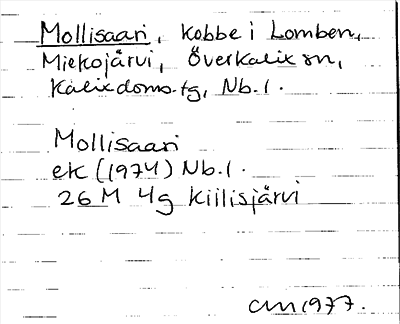 Mollisaari, kobbe i Lomben,
Miekojärvi, Överkalix sn,
Kalix doms.tg, Nb.l.
Mollisaari
ek (1974) Nb.l.
26 M 4g Kiilisjärvi
CM 1977.